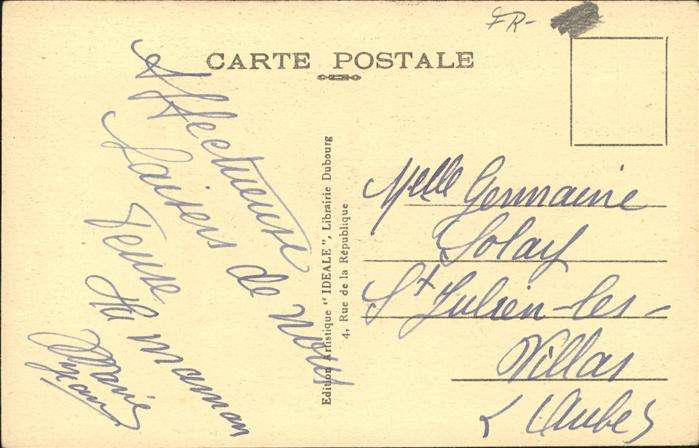 FR-
CARTE POSTALE
Affectueuse
baisers
de nous
Ta maman
Edition Artistique "IDEALE", Librairie Dubourg
4, Rue de la République
Melle Germaine
Solay
St Julien-les-
Villas
Aube